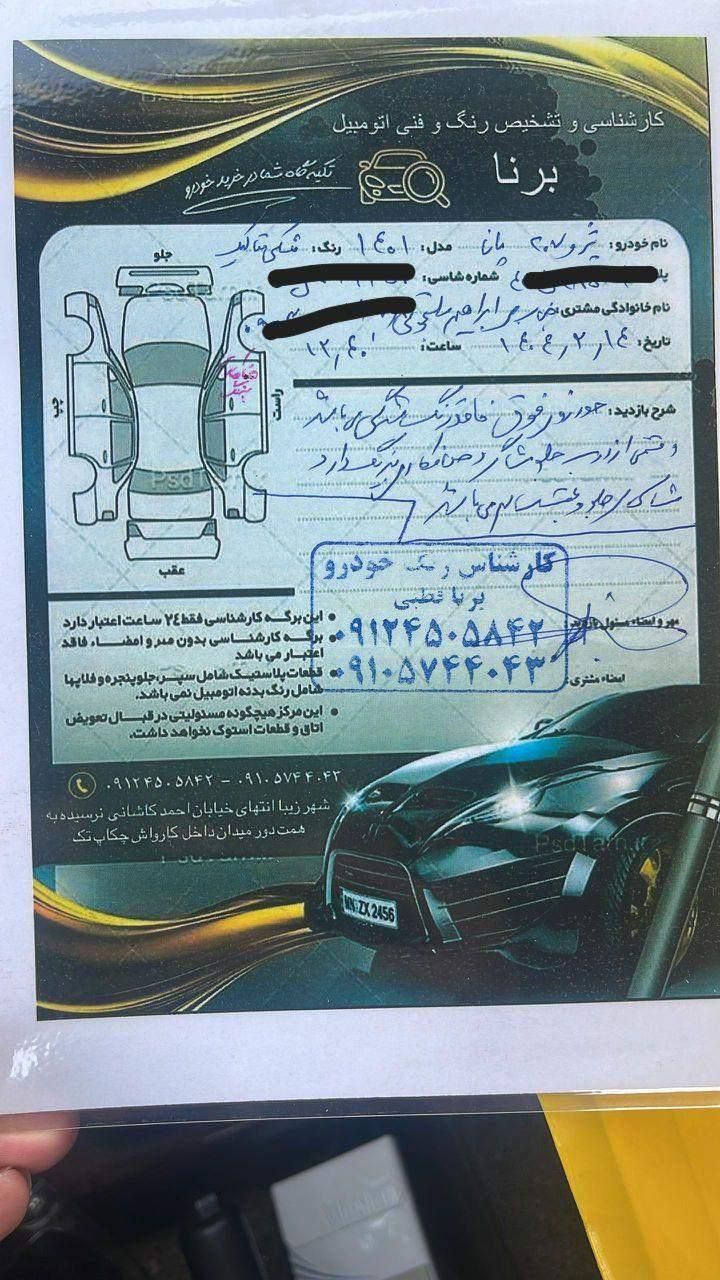 کارشناسی و تشخیص رنگ و فنی اتومبیل
برنا
تکیه گاه شما در خرید خودرو
نام خودرو: پژو ۲۰۷ پانا مدل: ۱۴۰۱ رنگ: مشکی متالیک
شماره شاسی:
نام خانوادگی مشتری: ابراهیم
تاریخ: ۱۴۰۴٫۲٫۱۴ ساعت: ۱۲٫۴۰
شرح بازدید: خودرو فوق فاقد رنگ شدگی می باشد
و قسمتی از درب جلو شاگرد
شاسی جلو و عقب سالم می باشد
جلو
چپ
راست
عقب
کارشناس رنگ خودرو
برنا قطبی
۰۹۱۲۴۵۰۵۸۴۲
۰۹۱۰۵۷۴۴۰۴۳
مهر و امضاء مسئول بازدید:
امضاء مشتری:
این برگه کارشناسی فقط ۲۴ ساعت اعتبار دارد
برگه کارشناسی بدون مهر و امضاء فاقد
اعتبار می باشد
قطعات پلاستیک شامل سپر، جلو پنجره و فلاپها
شامل رنگ بدنه اتومبیل نمی باشد.
این مرکز هیچگونه مسئولیتی در قبال تعویض
اتاق و قطعات استوک نخواهد داشت.
۰۹۱۲۴۵۰۵۸۴۲ - ۰۹۱۰۵۷۴۴۰۴۳
شهر زیبا انتهای خیابان احمد کاشانی نرسیده به
همت دور میدان داخل کارواش چکاپ تک
PsdTarh.ir
MN:ZX 2456